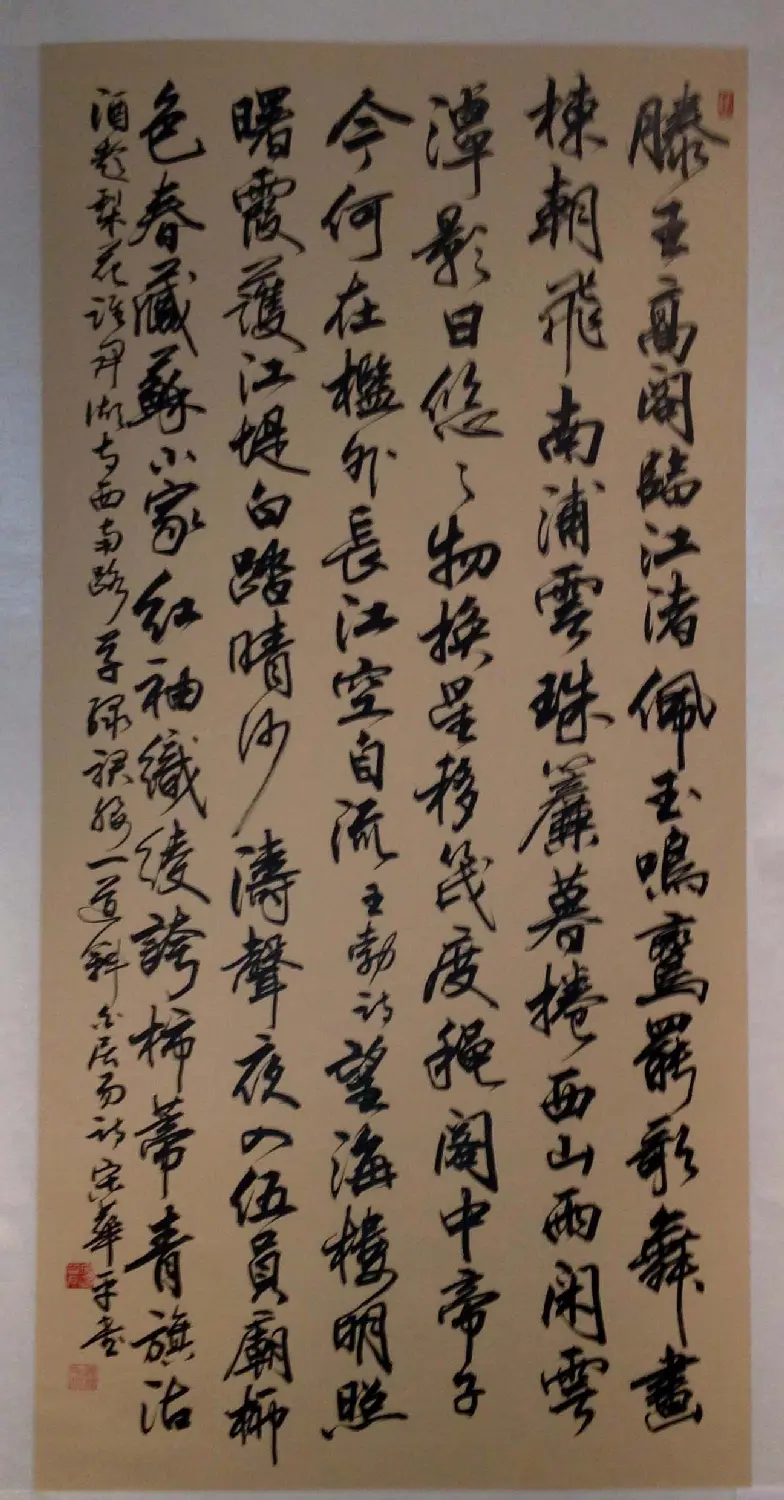 滕王高閣臨江渚佩玉鳴鸞罷歌舞畫
棟朝飛南浦雲珠簾暮捲西山雨閑雲
潭影日悠〻物換星移幾度穐閣中帝子
今何在檻外長江空自流王勃詩望海樓明照
曙霞護江堤白踏晴沙濤聲夜入伍員廟柳
色春藏蘇小家紅袖織綾誇柿蒂青旗沽
酒趁梨花誰開湖寺西南路草緑裙腰一道斜白居易詩宋華平書